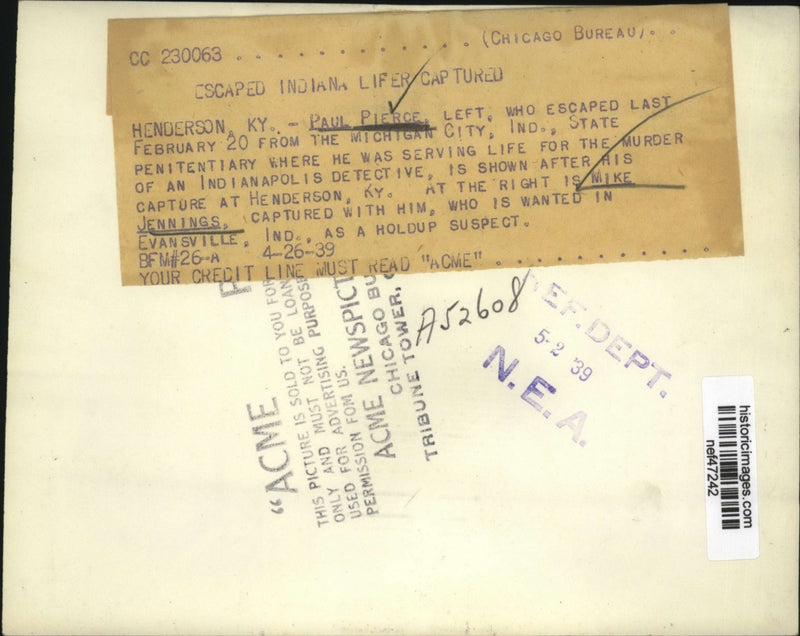 CC 230063 . . . . . . . . . . . . . (CHICAGO BUREAU). .
ESCAPED INDIANA LIFER CAPTURED
HENDERSON, KY. - PAUL PIERCE, LEFT, WHO ESCAPED LAST
FEBRUARY 20 FROM THE MICHIGAN CITY, IND., STATE
PENITENTIARY WHERE HE WAS SERVING LIFE FOR THE MURDER
OF AN INDIANAPOLIS DETECTIVE, IS SHOWN AFTER HIS
CAPTURE AT HENDERSON, KY. AT THE RIGHT IS MIKE
JENNINGS, CAPTURED WITH HIM, WHO IS WANTED IN
EVANSVILLE, IND., AS A HOLDUP SUSPECT.
BFM#26-A 4-26-39
YOUR CREDIT LINE MUST READ "ACME" . . . . . . . . . . .
"ACME
THIS PICTURE IS SOLD TO YOU FOR
ONLY AND MUST NOT BE LOAN
USED FOR ADVERTISING PURPOSE
PERMISSION FOM US.
ACME NEWSPICT
CHICAGO BU
TRIBUNE TOWER,
A52608
REF. DEPT.
5-2 39
N.E.A.
historicimages.com
nef47242